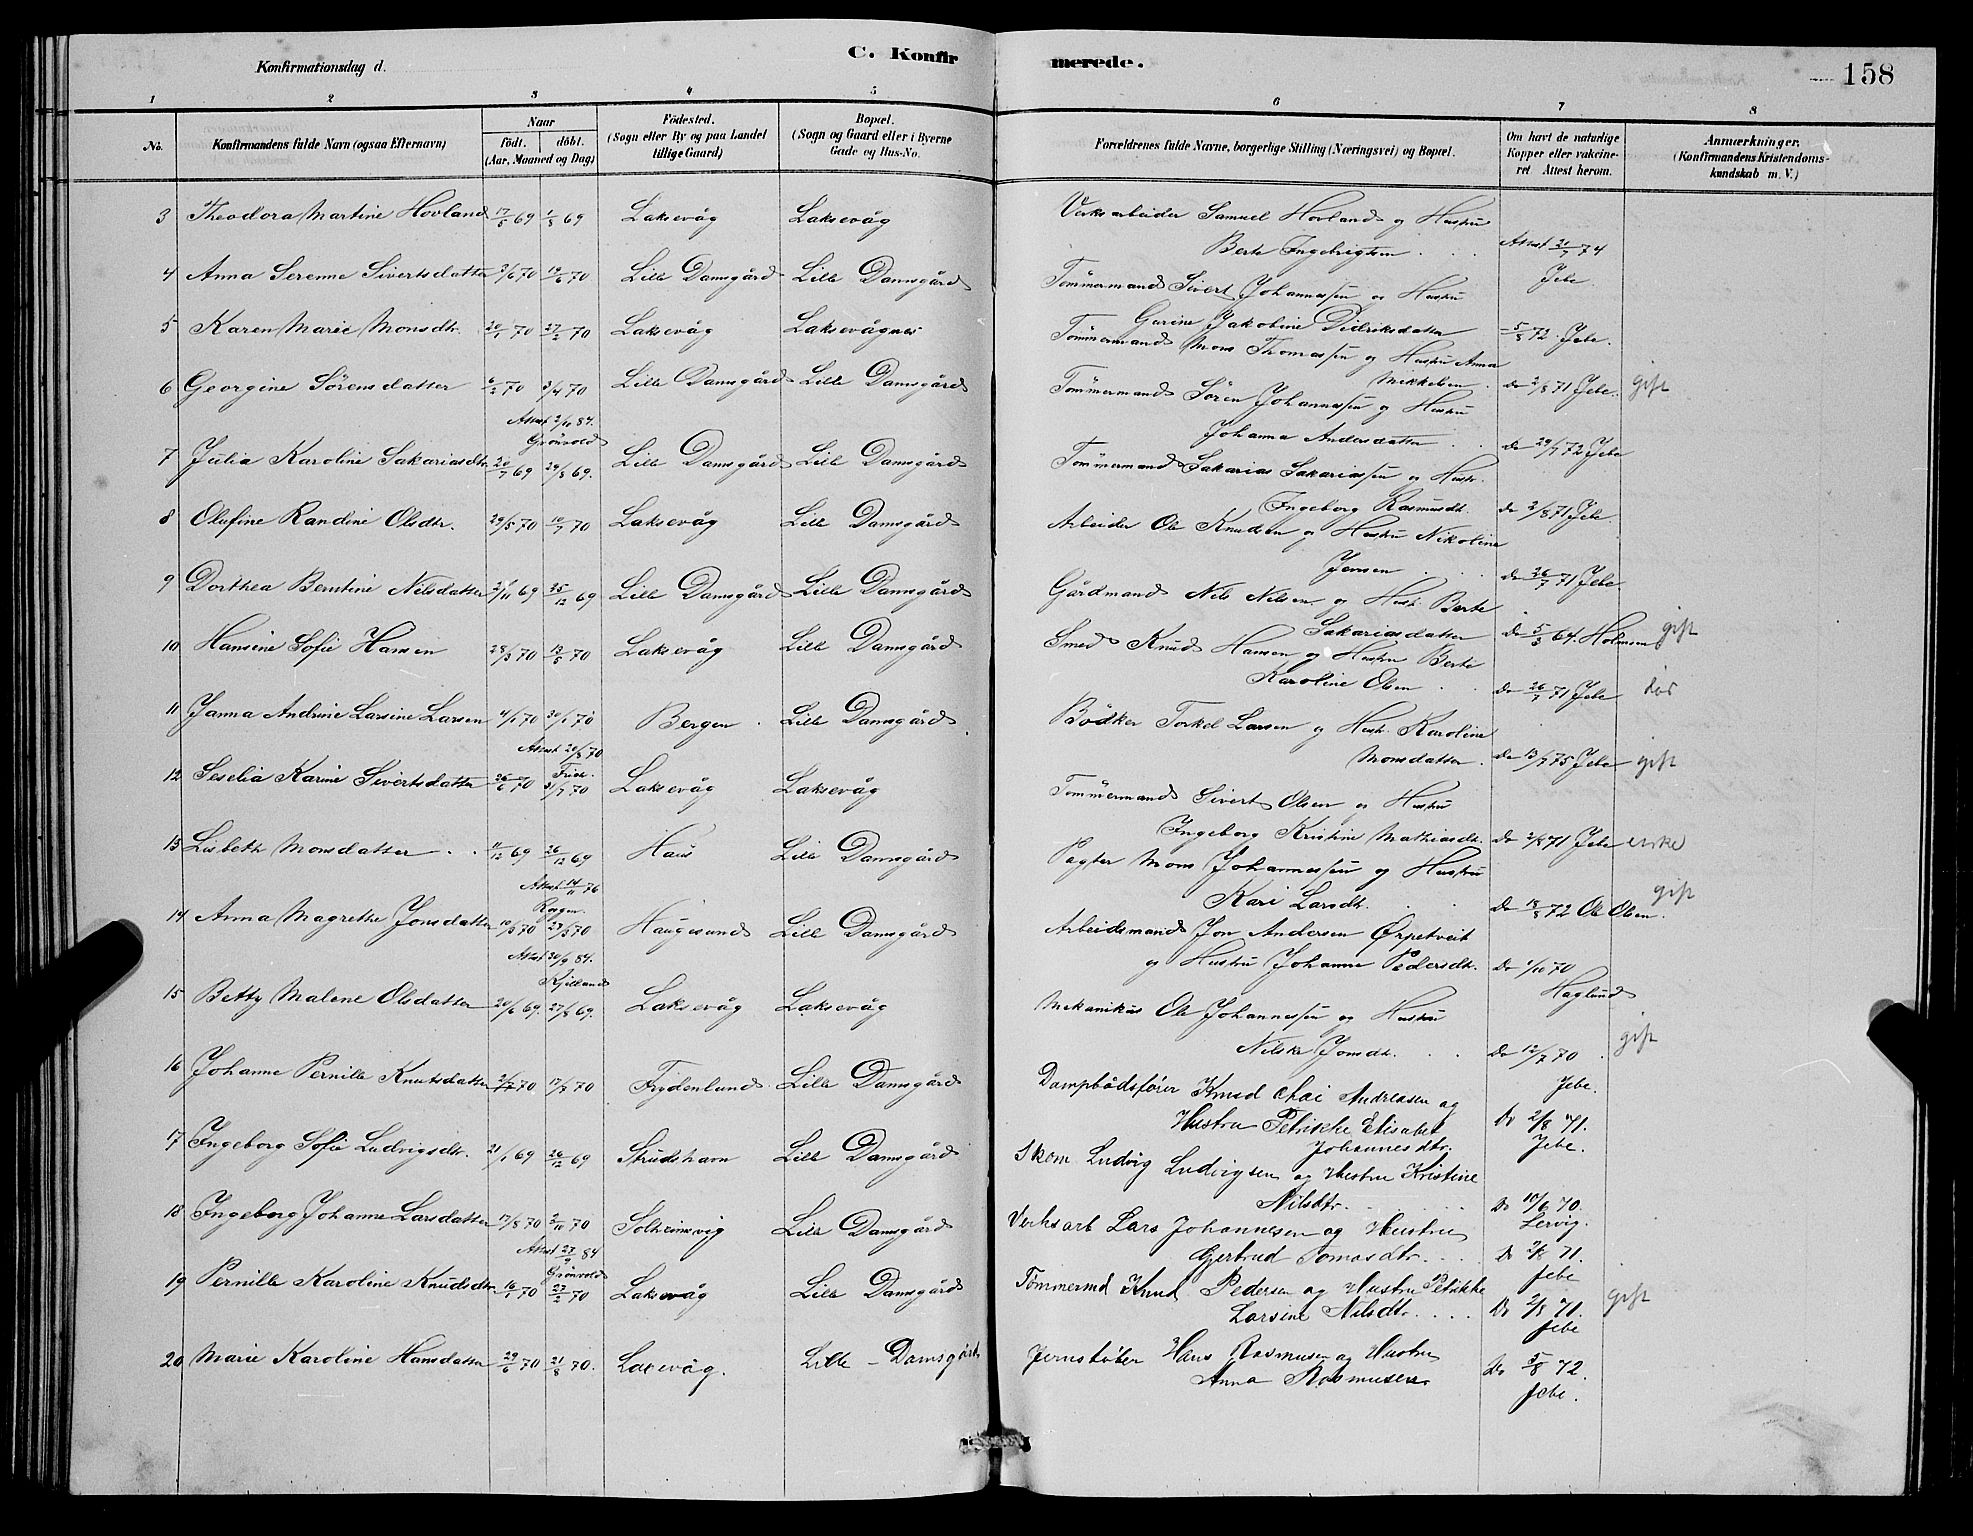 Konfirmationsdag d.
C. Konfirmerede.
158
1 2 3 4 5 6 7 8
No.
Konfirmandens fulde Navn (ogsaa Efternavn)
Naar
födt. döbt.
(Aar, Maaned og Dag)
Födested.
(Sogn eller By og paa Landet tillige Gaard)
Bopæl.
(Sogn og Gaard eller i Byerne Gade og Hus-No.
Forældrenes fulde Navne, borgerlige Stilling (Næringsvei) og Bopæl.
Om havt de naturlige Kopper eller vakcineret Attest herom.
Anmærkninger.
(Konfirmandens Kristendomskundskab m. V.)
3 Theodora Martine Hovland 17/5 69 1/8 69 Laksevåg Laksevåg Verksarbeider Samuel Hovland og Hustru
Berte Ingebrigtsen Attest 21/7 74
Jebe
4 Anna Serenne Sivertsdatter 3/6 70 19/6 70 Lille Damsgård Lille Damsgård Tömmermand Sivert Johannessen og Hustru
Gurine Jakobine Didriksdatter 5/8 72. Jebe.
5 Karen Marie Monsdtr. 20/1 70 27/2 70 Laksevåg Laksevågnes Tömmermand Mons Thomassen og Hustru Anna
Mikkelsen Do 2/8 71 Jebe.
6 Georgine Sörensdatter 6/2 70 3/4 70 Lille Damsgård Lille Damsgård Tömmermand Sören Johannessen og Hustru gift
Johanna Andersdatter Do 29/7 72 Jebe
Attest 2/10 84.
Grönvold
7 Julia Karoline Sakariasdtr 20/7 69 29/8 69. Lille Damsgård Lille Damsgård Tömmermand Sakarias Sakariassen og Hustr.
Ingeborg Rasmusdtr. Do 2/8 71 Jebe
8 Olufine Randine Olsdtr. 29/5 70 10/7 70 Laksevåg Lille Damsgård Arbeider Ole Knudsen og Hustru Nikoline
Jensen Do 26/7 71 Jebe.
9 Dorthea Berntine Nilsdatter 2/11 69 25/12 69 Lille Damsgård Lille Damsgård Gårdmand Nils Nilsen og Hust. Berte
Sakariasdatter Do 5/3 64. Holmsen gift
10 Hansine Sofie Hansen 28/3 70 13/5 70 Laksevåg Lille Damsgård Smed Knud Hansen og Hustru Berte
Karoline Olsen Do 26/7 71 Jebe
11 Janna Andrine Larsine Larsen 4/1 70 30/1 70 Bergen Lille Damsgård Bödker Torkel Larsen og Hust. Karoline
Monsdatter Do 13/7 75 Jebe gift
Attest 20/8 70
12 Seselia Karine Sivertsdatter 26/6 70 31/7 70 Laksevåg Laksevåg Tömmermand Sivert Olsen og Hustru
Ingeborg Kristine Mathiasdtr. Do 2/8 71 Jebe enke
13 Lisbeth Monsdatter 11/12 69 26/12 69 Haus Lille Damsgård Pagter Mons Johannessen og Hustru
Kari Larsdtr. Do 18/8 72 Ole Olsen. gift
Attest 14/11 76
14 Anna Magrethe Jonsdatter 10/3 70 27/3 70 Haugesund Lille Damsgård Arbeidsmand Jon Andersen Örpetveit
og Hustru Johanne Pedersdtr. Do 1/10 70
Haglund
Attest 30/9 84.
Kjelland
15 Betty Malene Olsdatter 20/6 69. 27/8 69. Laksevåg Laksevåg Mekanikus Ole Johannessen og Hustru
Nilska Jonsdtr. Do 12/7 70 gift
Jebe.
16 Johanne Pernille Knutsdatter 2/7 70 17/7 70 Frydenlund Lille Damsgård Dampbådsfører Knud Andreasen og
Hustru Petrikke Elisabet Do 2/8 71.
Johannesdtr. Jebe.
17 Ingeborg Sofie Ludvigsdtr. 21/1 69 26/12 69 Strudshavn Lille Damsgård Skom. Ludvig Ludvigsen og Hustru Kristine
Nilsdtr. Do 10/6 70.
Lervig.
18 Ingeborg Johanne Larsdatter 17/8 70 2/11 70 Solheimsvig Lille Damsgård Verksarb Lars Johannesen og Hustru
Gjertrud Tomasdtr. Do 2/8 71.
Jebe
Attest 27/9 84
Grönvold
19 Pernille Karoline Knudsdtr. 16/1 70 27/2 70 Laksevåg Lille Damsgård Tömmermd Knud Pedersen og Hustru Petrikke
Larsine Nilsdtr. Do 2/8 71. gift
Jebe
20 Marie Karoline Hansdatter 29/6 70 21/8 70. Laxevåg. Lille - Damsgård Jernstøber Hans Rasmusen og Hustru
Anna Rasmusen Do 5/8 72.
Jebe.